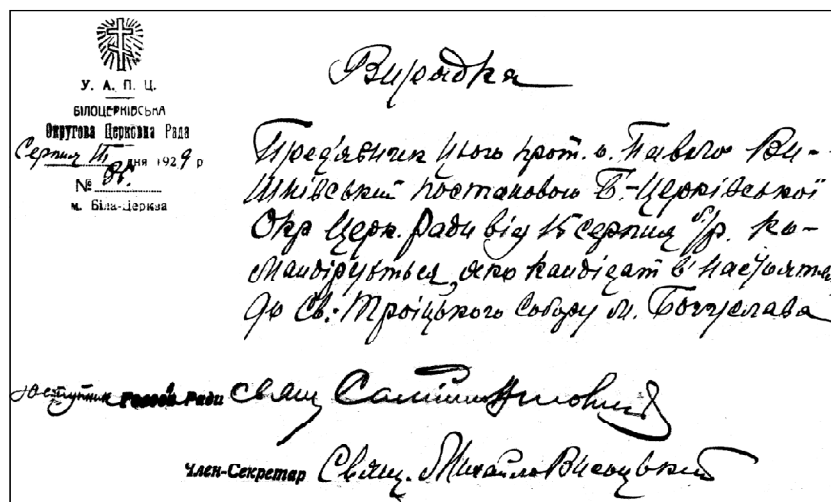 У. А. П. Ц.
БІЛОЦЕРКІВСЬКА
Округова Церковна Рада
Серпня дня 1929 р
№
м. Біла-Церква
Виписка
Пред'явник цього прот. о. Павло Ви-
шнівський постановою Б.-Церківської
Окр Церк. Ради від 15 серпня б/р. ко-
мандірується, яко кандідат в настоятелі
до Св.-Троіцького Собору м. Богуслава
Заступник Голови Ради Свящ
Член-Секретар Свящ. Михайло Висоцький